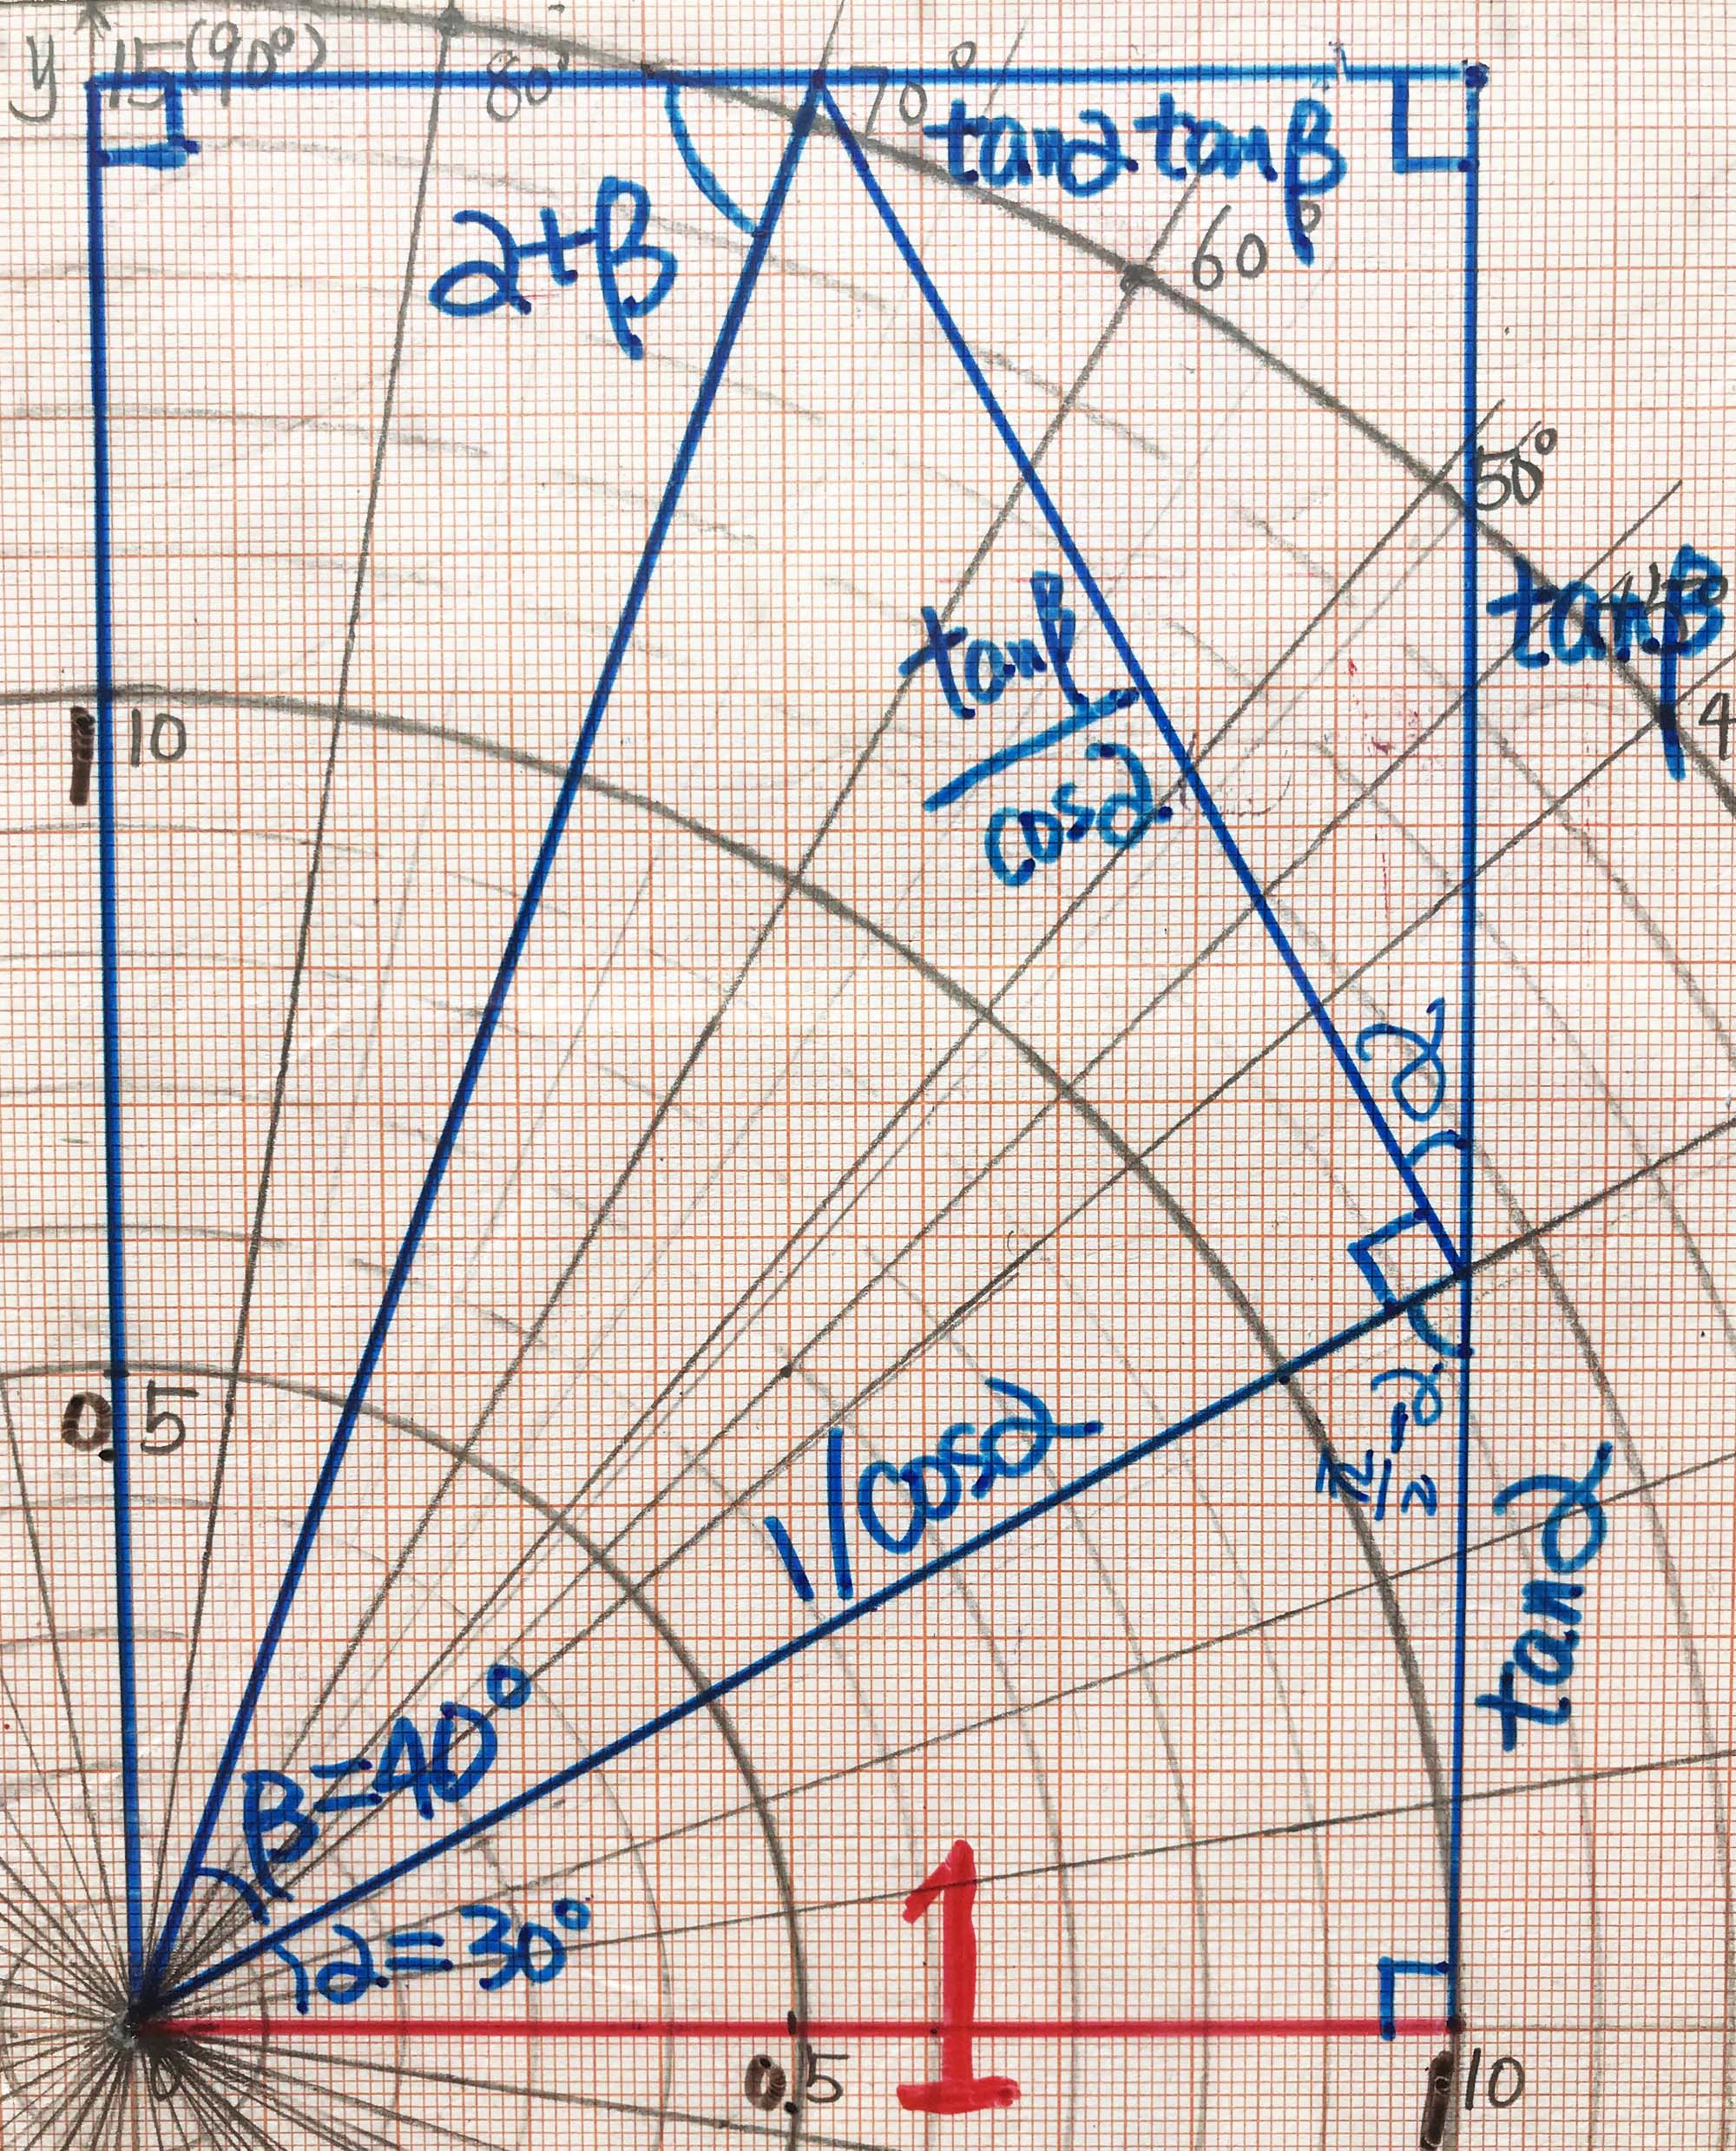 y 15(90°)
80°
70°
tanα・tanβ
α+β
60°
50°
tanβ
45°
4
1 10
tanβ
cosα
α
0.5
1/cosα
π/2-α
tanα
β=40°
α=30°
1
0
0.5
1 10